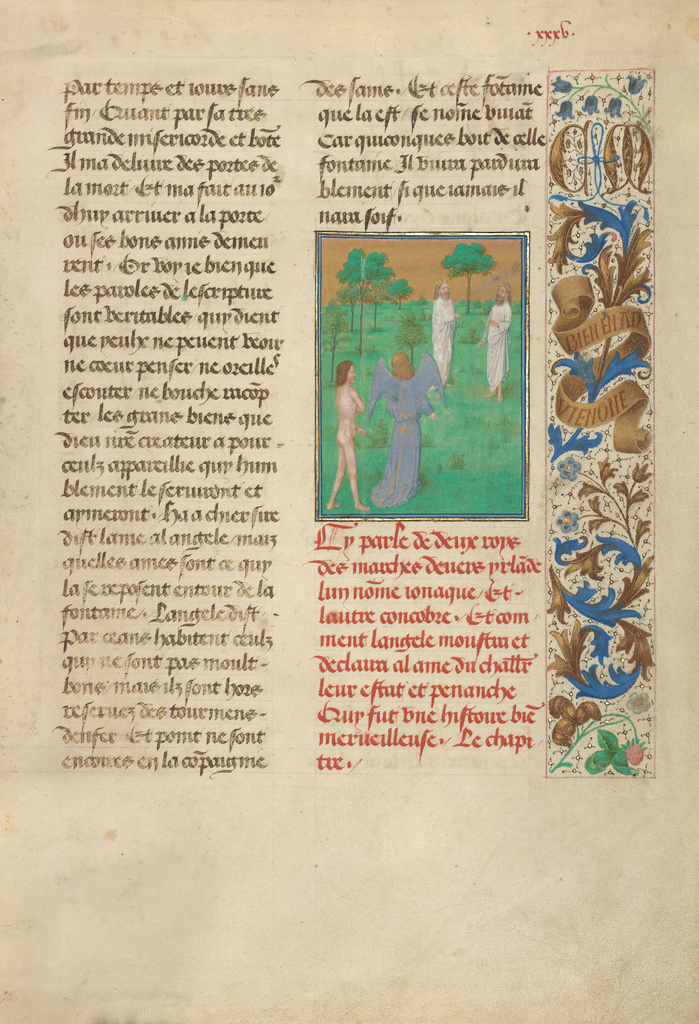 .xxxv.
par temps et iours sans
fin / Et auant par sa tres
grande misericorde et bōte
Il ma deliure des portes de
la mort Et ma fait au io
dhuy arriuer a la porte
ou ses bons amis demeu
rent . Or voy ie bien que
les paroles de lescripture
sont veritables quy dient
que yeulx ne peuent veoir
ne coeur penser ne oreilles
escouter ne bouche racōp
ter les grans biens que
dieu nr̄e createur a pour -
ceulz appareillie quy hum
blement le seruiront et
aymeront . Ha a chier sire
dist lame al angele / maiz
quelles ames sont ce quy
la se reposent entour de la
fontaine . Langele dist .
Par ceans habitent ceulz
quy ne sont pas moult -
bons / mais ilz sont hors
reseruez des tourmens -
denfer . Et point ne sont
encoires en la cōpaignie
des sains . Et ceste fōtaine
que la est / se nōme viuāt
Car quiconques boit de celle
fontaine Il viura pardura
blement si que iamais il
nara soif .
Cy parle de deux roys
des marches deuers yrlāde
lun nōme ionaque / Et -
lautre concobre . Et com
ment langele moustra et
declaira al ame du chlr̄
leur estat et penanche
Quy fut vne histoire biē
merueilleuse . Le chapi
tre . /
BIEN EN AD
VIENGNE